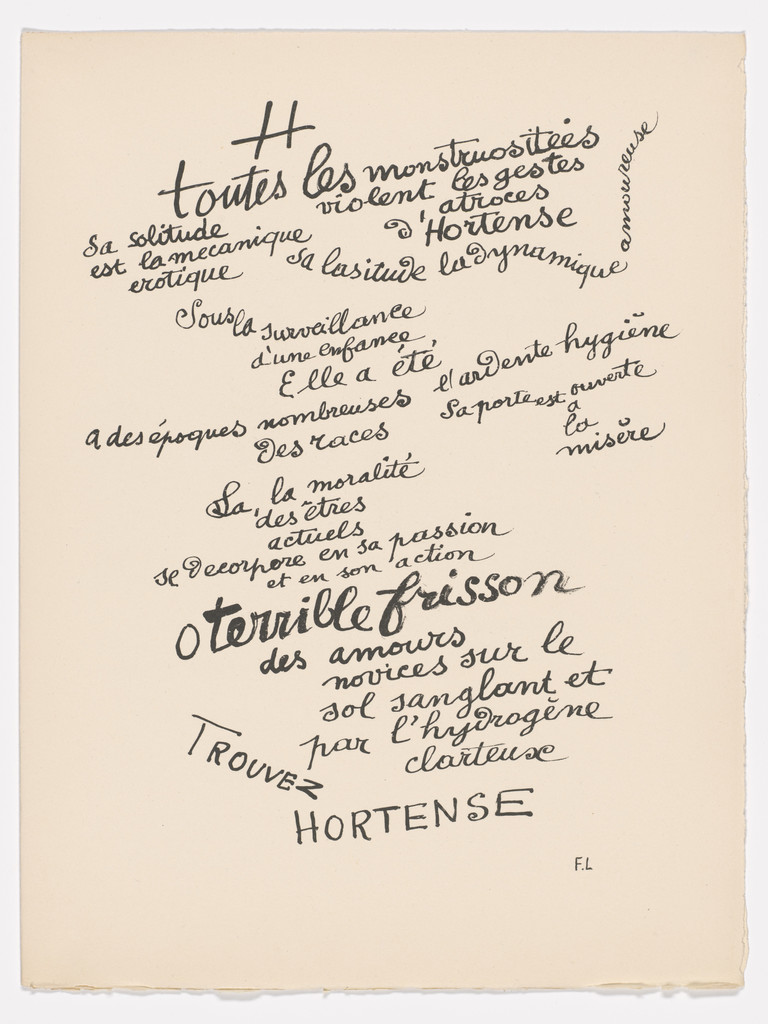 H
toutes les monstruositées
violent les gestes
atroces
d'Hortense
Sa solitude
est la mecanique
erotique
Sa lasitude la dynamique amoureuse
Sous la surveillance
d'une enfance
Elle a été,
a des époques nombreuses
des races
l'ardente hygiène
Sa porte est ouverte
a
la
misère
La, la moralité
des êtres
actuels
se decorpore en sa passion
et en son action
O terrible frisson
des amours
novices sur le
sol sanglant et
par l'hydrogène
clarteuse
TROUVEZ
HORTENSE
F.L